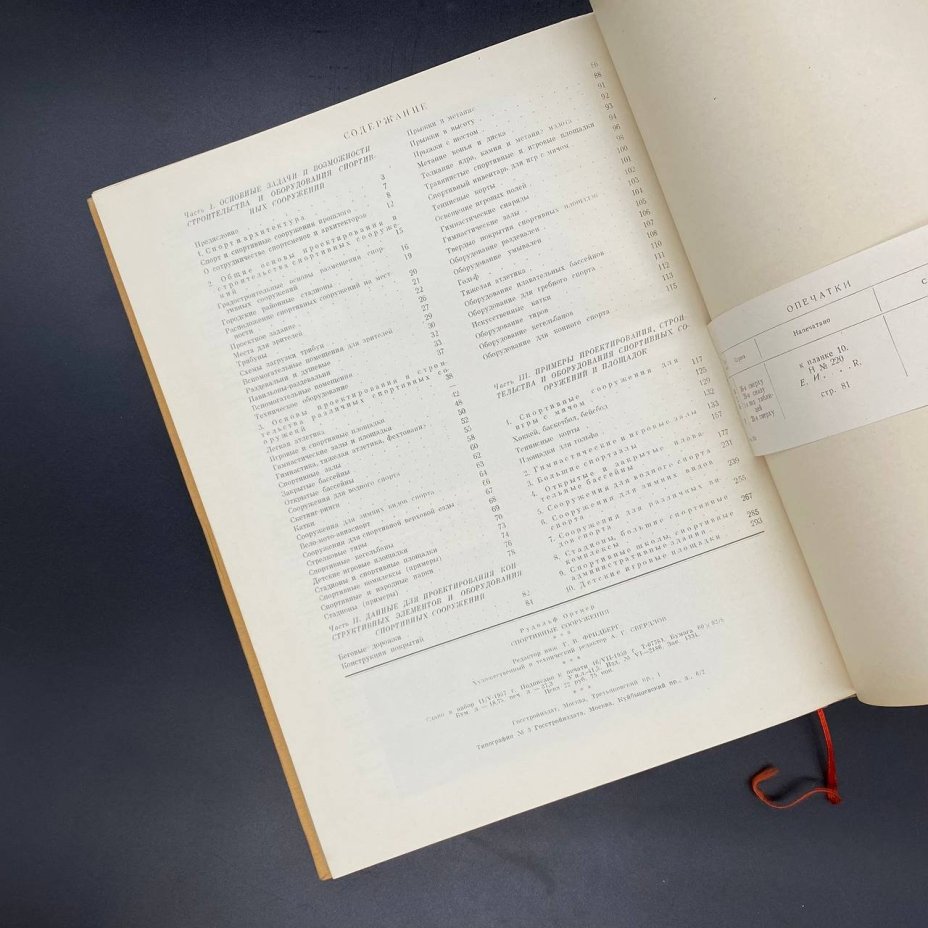 СОДЕРЖАНИЕ
Часть I. ОСНОВНЫЕ ЗАДАЧИ И ВОЗМОЖНОСТИ
СТРОИТЕЛЬСТВА И ОБОРУДОВАНИЯ СПОРТИВ-
НЫХ СООРУЖЕНИЙ
Предисловие 3
1. Спортивная архитектура 7
Спорт и спортивные сооружения прошлого 8
О сотрудничестве спортсменов и архитекторов 12
2. Общие основы проектирования и
строительства спортивных сооруже-
ний 15
Градостроительные основы размещения спор-
тивных сооружений 16
Городские районные стадионы 19
Расположение спортивных сооружений на мест-
ности 20
Проектное задание 21
Места для зрителей 22
Трибуны 26
Схемы загрузки трибун 27
Вспомогательные помещения для зрителей 29
Раздевальни и душевые 30
Павильоны-раздевальни 32
Вспомогательные помещения 33
Техническое оборудование 37
3. Основы проектирования и строи-
тельства различных спортивных со-
оружений 38
Легкая атлетика —
Игровые и спортивные площадки 42
Гимнастические залы и площадки 48
Гимнастика, тяжелая атлетика, фехтование 50
Спортивные залы 52
Закрытые бассейны 55
Открытые бассейны 58
Сооружения для водного спорта 60
Скетинг-ринги 62
Катки 63
Сооружения для зимних видов спорта 64
Вело-мото-авиаспорт 66
Сооружения для спортивной верховой езды 67
Стрелковые тиры 68
Спортивные кегельбаны 69
Детские игровые площадки 70
Стадионы и спортивные площадки 73
Спортивные комплексы (примеры) 74
Спортивные и народные парки 76
Стадионы (примеры) 78
Часть II. ДАННЫЕ ДЛЯ ПРОЕКТИРОВАНИЯ КОН-
СТРУКТИВНЫХ ЭЛЕМЕНТОВ И ОБОРУДОВАНИЯ
СПОРТИВНЫХ СООРУЖЕНИЙ
Беговые дорожки 82
Конструкции покрытий 84
Прыжки и метание
Прыжки в высоту 88
Прыжки с шестом 91
Метание копья и диска 92
Толкание ядра, камня и метание молота 93
Травянистые спортивные и игровые площадки 94
Спортивный инвентарь для игр с мячом 96
Теннисные корты 98
Освещение игровых полей 99
Гимнастические снаряды 100
Гимнастические залы 101
Твердые покрытия спортивных площадок 102
Оборудование раздевален 103
Оборудование умывален 105
Гольф 106
Тяжелая атлетика 107
Оборудование плавательных бассейнов 108
Оборудование для гребного спорта 110
Искусственные катки 111
Оборудование тиров 112
Оборудование кегельбанов 113
Оборудование для конного спорта 115
Часть III. ПРИМЕРЫ ПРОЕКТИРОВАНИЯ, СТРОИ-
ТЕЛЬСТВА И ОБОРУДОВАНИЯ СПОРТИВНЫХ СО-
ОРУЖЕНИЙ И ПЛОЩАДОК
1. Спортивные сооружения для
игры с мячом 117
Хоккей, баскетбол, бейсбол 125
Теннисные корты 129
Площадки для гольфа 132
2. Гимнастические и игровые залы 133
3. Большие спортзалы 157
4. Открытые и закрытые плава-
тельные бассейны 177
5. Сооружения для водного спорта 231
6. Сооружения для зимних видов
спорта 239
7. Сооружения для различных ви-
дов спорта 255
8. Стадионы, большие спортивные
комплексы 267
9. Спортивные школы, спортивные
административные здания 285
10. Детские игровые площадки 293
Рудольф Ортнер
СПОРТИВНЫЕ СООРУЖЕНИЯ
* * *
Редактор инж. Г. В. ФЕЛДБЕРГ
Художественный и технический редактор А. Г. СВЕРДЛОВ
* * *
Сдано в набор 11/V-1957 г. Подписано к печати
Цена 22 руб. 75 коп.
* * *
Госстройиздат, Москва, Третьяковский пр., 1
Типография № 3 Госстройиздата, Москва, Куйбышевский пр., д. 6/2
ОПЕЧАТКИ
Строка Напечатано
к планке 10.
Н № 220
E. И . . . R.
стр. 81